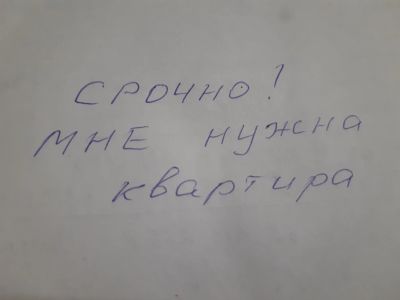 СРОЧНО!
МНЕ нужна
квартира